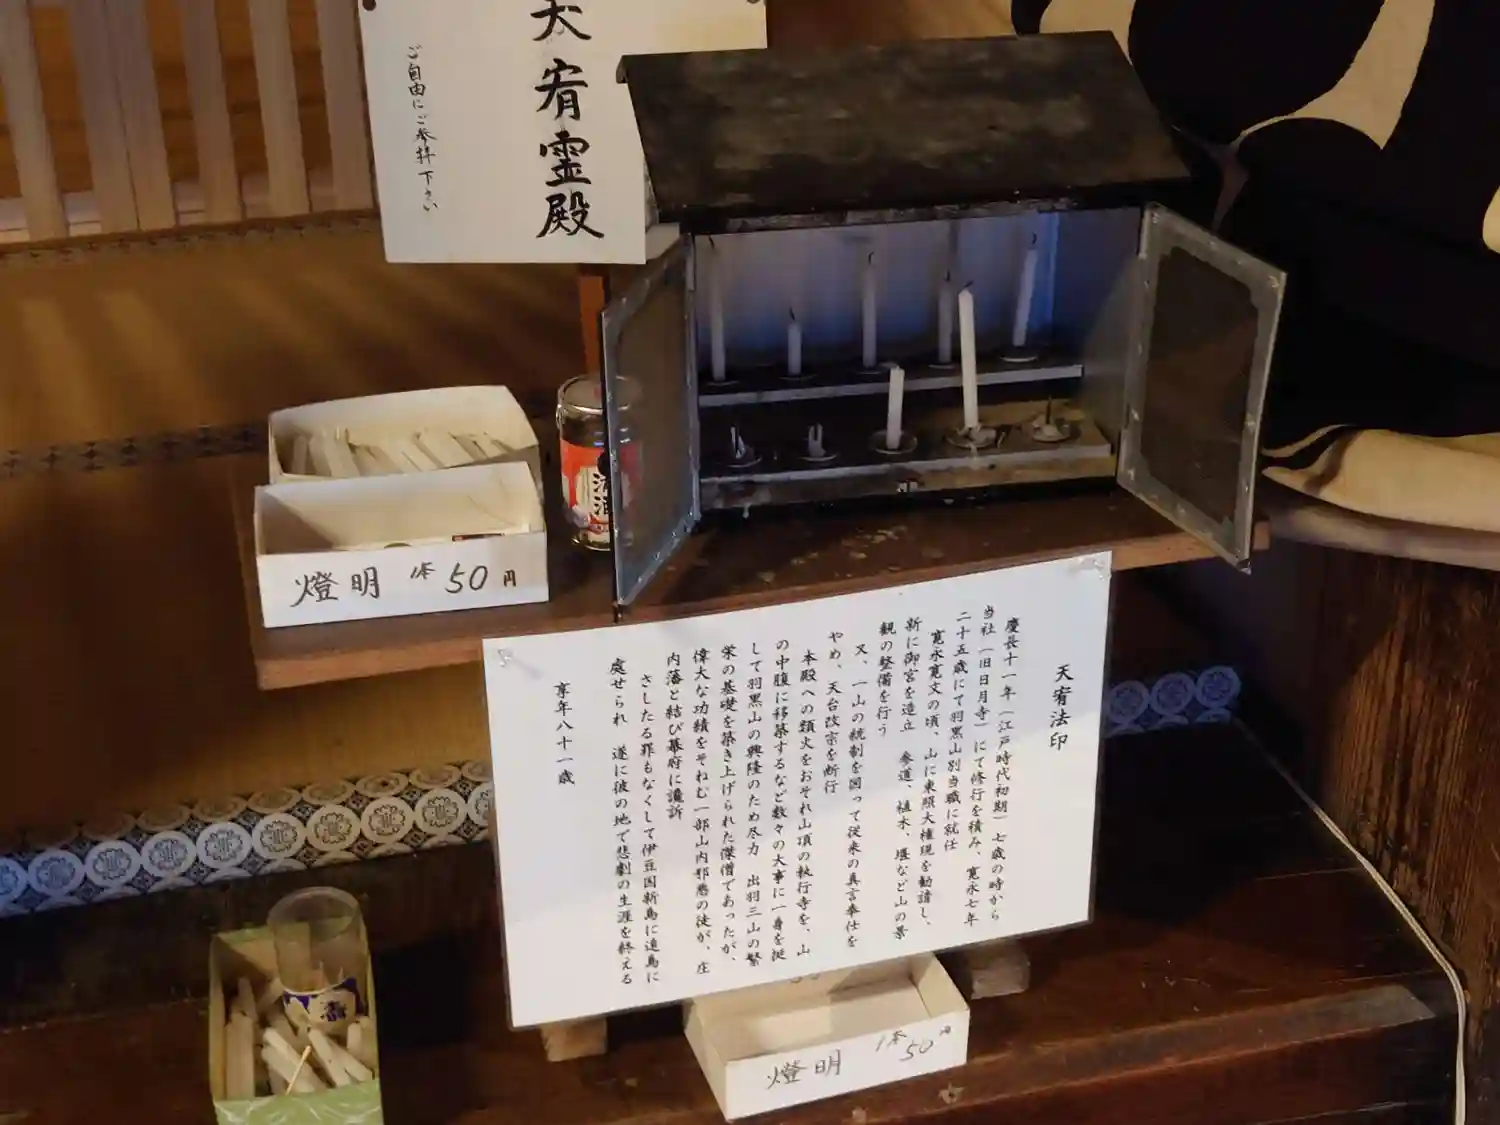 天宥霊殿
ご自由にご参拝下さい
清酒
燈明 1本 50円
天宥法印
慶長十一年(江戸時代初期)七歳の時から
当社(旧日月寺)にて修行を積み、寛永七年
二十五歳にて羽黒山別当職に就任
寛永寛文の頃、山に東照大権現を勧請し、
新に御宮を造立 参道、植木、堰など山の景
観の整備を行う
又、一山の統制を図って従来の真言奉仕を
やめ、天台改宗を断行
本殿への類火をおそれ山頂の執行寺を、山
の中腹に移築するなど数々の大事に一身を挺
して羽黒山の興隆のため尽力 出羽三山の繁
栄の基礎を築き上げられた傑僧であったが、
偉大な功績をそねむ一部山内邪悪の徒が、庄
内藩と結び幕府に讒訴
さしたる罪もなくして伊豆国新島に遠島に
處せられ 遂に彼の地で悲劇の生涯を終える
享年八十一歳
燈明 1本 50円